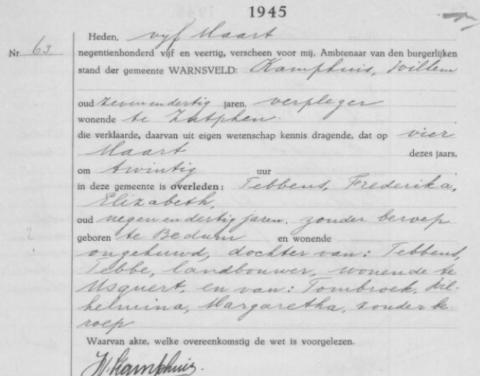 1945
Heden, vyf Maart
Nr. 63
negentienhonderd vijf en veertig, verscheen voor mij, Ambtenaar van den burgerlijken
stand der gemeente WARNSVELD: Kamphuis, Willem
oud zevenendertig jaren, verpleger
wonende te Zutphen
die verklaarde, daarvan uit eigen wetenschap kennis dragende, dat op vier
Maart dezes jaars,
om twintig uur
in deze gemeente is overleden: Tebbens, Frederika,
Elizabeth,
oud negenendertig jaren, zonder beroep
geboren te Bedum en wonende
ongehuwd, dochter van: Tebbens,
Tebbe, landbouwer, wonende te
Usquert, en van: Tombroek, Wil
helmina, Margaretha, zonder be
roep
Waarvan akte, welke overeenkomstig de wet is voorgelezen.
W. Kamphuis.